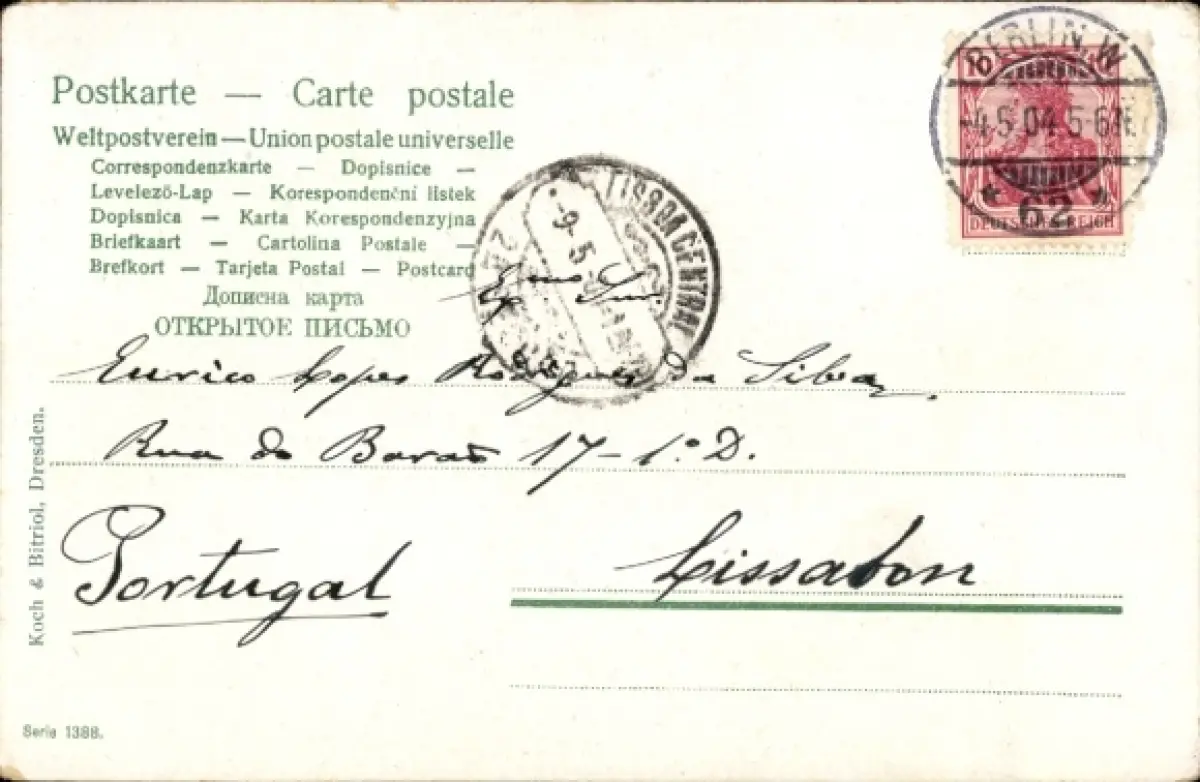 Postkarte — Carte postale
Weltpostverein — Union postale universelle
Correspondenzkarte — Dopisnice —
Levelező-Lap — Korespondenční lístek
Dopisnica — Karta Korespondenzyjna
Briefkaart — Cartolina Postale —
Brefkort — Tarjeta Postal — Postcard
Дописна карта
ОТКРЫТОЕ ПИСЬМО
BERLIN.W
-4.5.04.5-6N.
* 62 *
10
DEUTSCHES REICH
LISBOA CENTRAL
-9-5
Exmo Snr.
Eurico Lopes Rodrigues da Silva,
Rua do Barão 17-1.º D.
Lissabon
Portugal
Koch & Bitriol, Dresden.
Serie 1388.